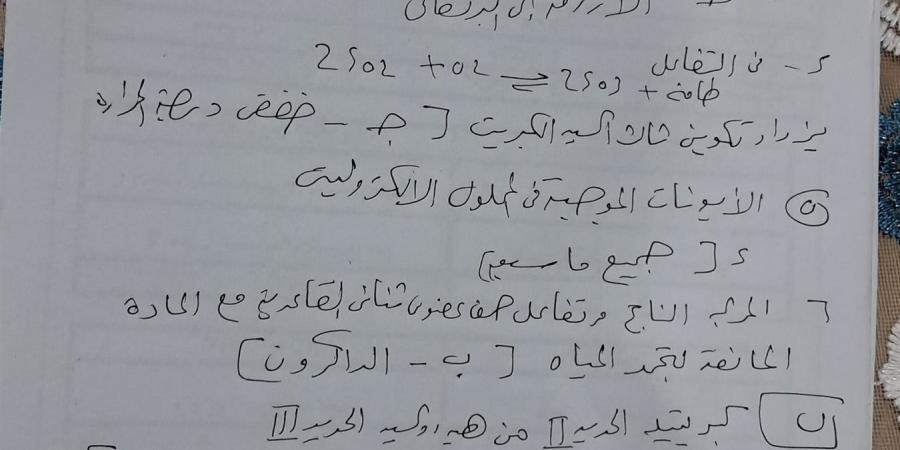 الأزرق إلى البرتقالى
٤ - فى التفاعل 2SO2 + O2 ⇌ 2SO3 + طاقة
يزداد تكوين ثالث أكسيد الكبريت [ جـ - خفض درجة الحرارة
٥ الأيونات الموجبة فى المحلول الالكتروليتى
د [ جميع ما سبق ]
٦ المركب الناتج من تفاعل حمض عضوى ثنائى القاعدية مع المادة
المانعة لتجمد المياه [ ب - الداكرون ]
ب كبريتيد الحديد II من هيدروكسيد الحديد III